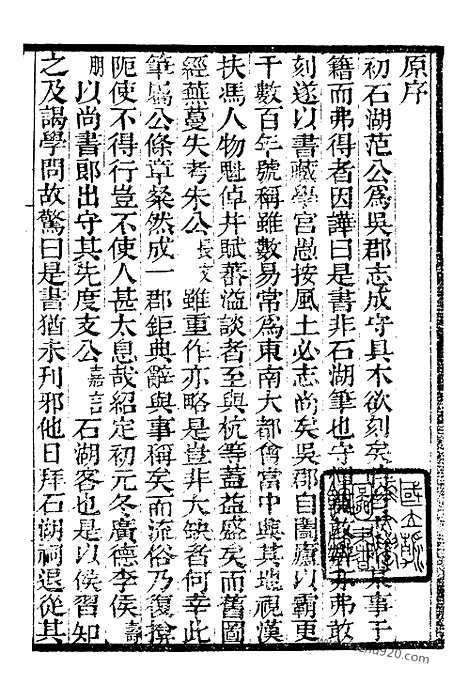 原序
初石湖范公爲吳郡志成守具木欲刻矣時有求附某事于
籍而弗得者因譁曰是書非石湖筆也守憚莫敢辨亦弗敢
刻遂以書藏學宮愚按風土必志尚矣吳郡自闔廬以霸更
千數百年號稱雖數易常爲東南大都會當中興其地視漢
扶馮人物魁倬井賦蕃溢談者至與杭等蓋益盛矣而舊圖
經蕪蔓失考朱公長文雖重作亦略是豈非大缺者何幸此
筆屬公條章粲然成一郡鉅典辭與事稱矣而流俗乃復撓
阨使不得行豈不使人甚太息哉紹定初元冬廣德李侯壽
朋以尚書郎出守其先度支公嘉言石湖客也是以侯習知
之及謁學問故驚曰是書猶未刊邪他日拜石湖祠退從其